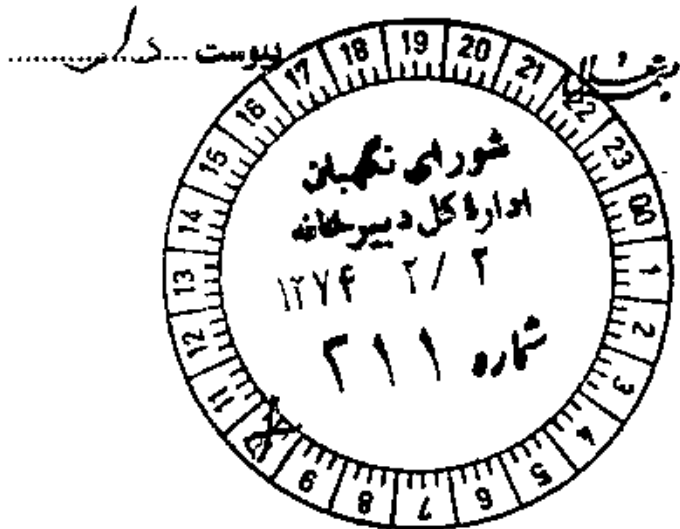 پیوست دارد
شورای نگهبان
اداره کل دبیرخانه
۱۳۷۴ ۲/ ۲
شماره ۳۱۱
00 1 2 3 4 5 6 7 8 9 10 11 12 13 14 15 16 17 18 19 20 21 22 23